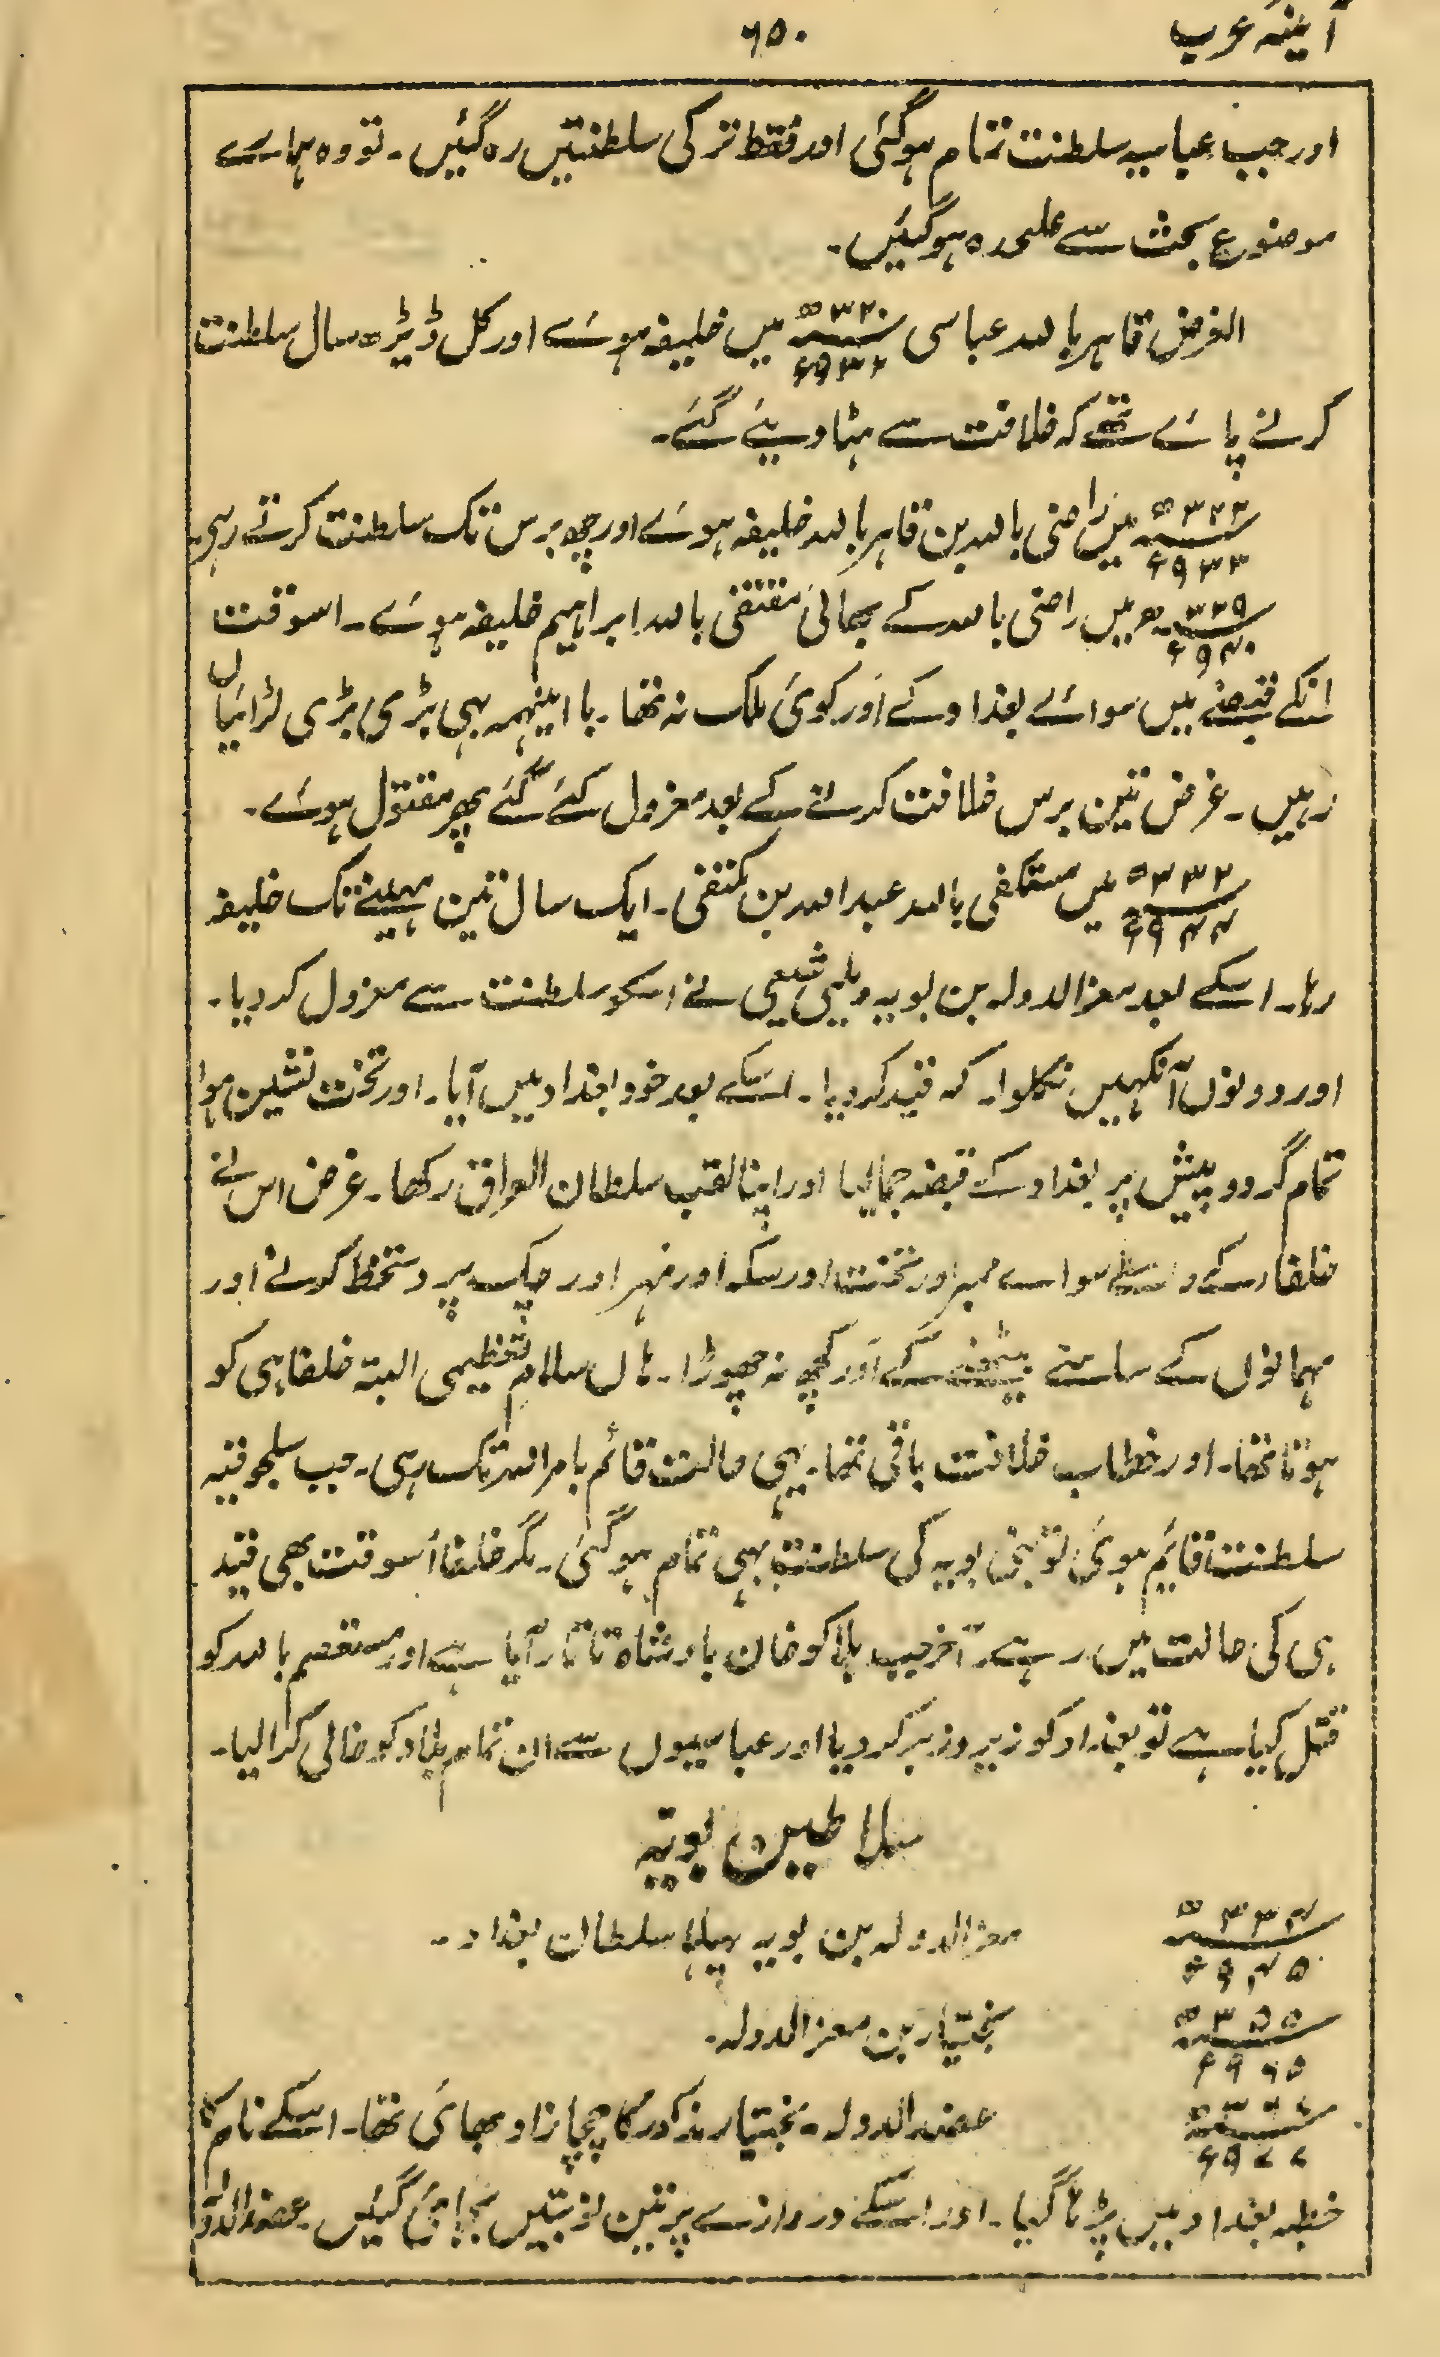 آئینہ عرب
۶۵۰
اور جب عباسیہ سلطنت تمام ہوگئی اور فقط ترکی سلطنتیں رہ گئیں۔ تو وہ ہمارے
موضوع بحث سے علیحدہ ہوگئیں۔
الغرض قاہر باللہ عباسی ۳۲۰ھ ۹۳۲ء میں خلیفہ ہوئے اور کل ڈیڑھ سال سلطنت
کرنے پائے تھے کہ خلافت سے ہٹا دیئے گئے۔
۳۲۲ھ ۹۳۳ء میں راضی باللہ بن قاہر باللہ خلیفہ ہوئے اور چھ برس تک سلطنت کرتے رہی
۳۲۹ھ ۹۴۰ء میں راضی باللہ کے بھائی متقی باللہ ابراہیم خلیفہ ہوئے۔ اسوقت
انکے قبضے میں سوائے بغداد کے اَور کوئی ملک نہ تھا۔ با اینہمہ بہی بڑی بڑی لڑائیاں
رہیں۔ غرض تین برس خلافت کرنے کے بعد معزول کئے گئے پھر مقتول ہوئے۔
۳۳۲ھ ۹۴۴ء میں مستکفی باللہ عبداللہ بن مکتفی۔ ایک سال تین مہینے تک خلیفہ
رہا۔ اسکے بعد معزالدولہ بن بویہ دیلمی شیعی نے اسکو سلطنت سے معزول کردیا۔
اور دونوں آنکہیں نکلوا کر قید کردیا۔ اسکے بعد خود بغداد میں آیا۔ اور تخت نشین ہوا
تمام گرد و پیش پر بغداد کے قبضہ جمالیا اور اپنا لقب سلطان العراق رکھا۔ غرض اس نے
خلفاء کے واسطے سوا سے ممبر اور تخت اور سکہ اور مہر اور چک پر دستخط کرنے اور
مہمانوں کے سامنے بیٹھنے کے اَور کچھ نہ چھوڑا۔ ہاں سلام تعظیمی البتہ خلفا ہی کو
ہوتا تھا۔ اور خطاب خلافت باقی تھا۔ یہی حالت قائم بامراللہ تک رہی۔ جب سلجوقیہ
سلطنت قایم ہوئی تو بنی بویہ کی سلطنت بہی تمام ہوگئی۔ مگر خلفا اُسوقت بھی قید
ہی کی حالت میں رہے۔ آخر جب ہلاکو خان بادشاہ تاتار آیا ہے اور مستعصم باللہ کو
قتل کیا ہے تو بغداد کو زیر و زبر کردیا اور عباسیوں سے ان تمام بلاد کو خالی کرالیا۔
سلاطین بویہ
۳۳۴ھ ۹۴۵ء معزالدولہ بن بویہ پہلا سلطان بغداد۔
۳۵۵ھ ۹۶۵ء بختیار بن معزالدولہ۔
۹۷۷ء عضدالدولہ۔ بختیار مذکور کا چچا زاد بھائی تھا۔ اسکے نام کا
خطبہ بغداد میں پڑھا گیا۔ اور اسکے دروازے پر تین نوبتیں بجائی گئیں۔ عضدالدولہ